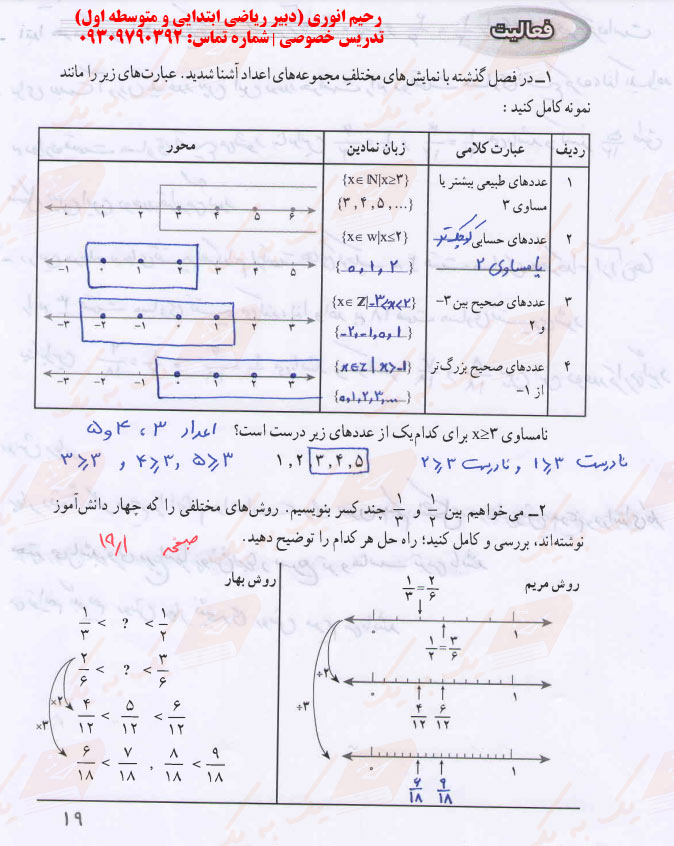 رحیم انوری (دبیر ریاضی ابتدایی و متوسطه اول)
تدریس خصوصی | شماره تماس: ۰۹۳۰۹۷۹۰۳۹۲
فعالیت
۱ــ در فصل گذشته با نمایش‌های مختلف مجموعه‌های اعداد آشنا شدید. عبارت‌های زیر را مانند
نمونه کامل کنید:
ردیف عبارت کلامی زبان نمادین محور
۱ عددهای طبیعی بیشتر یا مساوی ۳ {x∈ℕ|x≥۳} {۳,۴,۵,...}
۰ ۱ ۲ ۳ ۴ ۵ ۶
۲ عددهای حسابی کوچک‌تر یا مساوی ۲ {x∈w|x≤۲} {۰,۱,۲}
−۱ ۰ ۱ ۲ ۳ ۴ ۵
۳ عددهای صحیح بین ۳− و ۲ {x∈ℤ|−۳<x<۲} {−۲,−۱,۰,۱}
−۳ −۲ −۱ ۰ ۱ ۲ ۳
۴ عددهای صحیح بزرگ‌تر از ۱− {x∈ℤ|x>−۱} {۰,۱,۲,۳,...}
−۳ −۲ −۱ ۰ ۱ ۲ ۳
نامساوی x≥۳ برای کدام یک از عددهای زیر درست است؟ اعداد ۳ ، ۴ و ۵
۱,۲,۳,۴,۵
نادرست ۱≥۳ و نادرست ۲≥۳
۳≥۳ و ۴≥۳ , ۵≥۳
۲ــ می‌خواهیم بین ۱/۲ و ۱/۳ چند کسر بنویسیم. روش‌های مختلفی را که چهار دانش‌آموز
نوشته‌اند، بررسی و کامل کنید؛ راه حل هر کدام را توضیح دهید.
صفحه ۱۹/۱
روش مریم
۱/۳=۲/۶
۰ ۱
۱/۲=۳/۶
÷۲
۰ ۱
۴/۱۲ ۶/۱۲
÷۳
۰ ۱
۶/۱۸ ۹/۱۸
روش بهار
۱/۳ < ? < ۱/۲
۲/۶ < ? < ۳/۶
×۲
۴/۱۲ < ۵/۱۲ < ۶/۱۲
×۳
۶/۱۸ < ۷/۱۸ , ۸/۱۸ < ۹/۱۸
۱۹